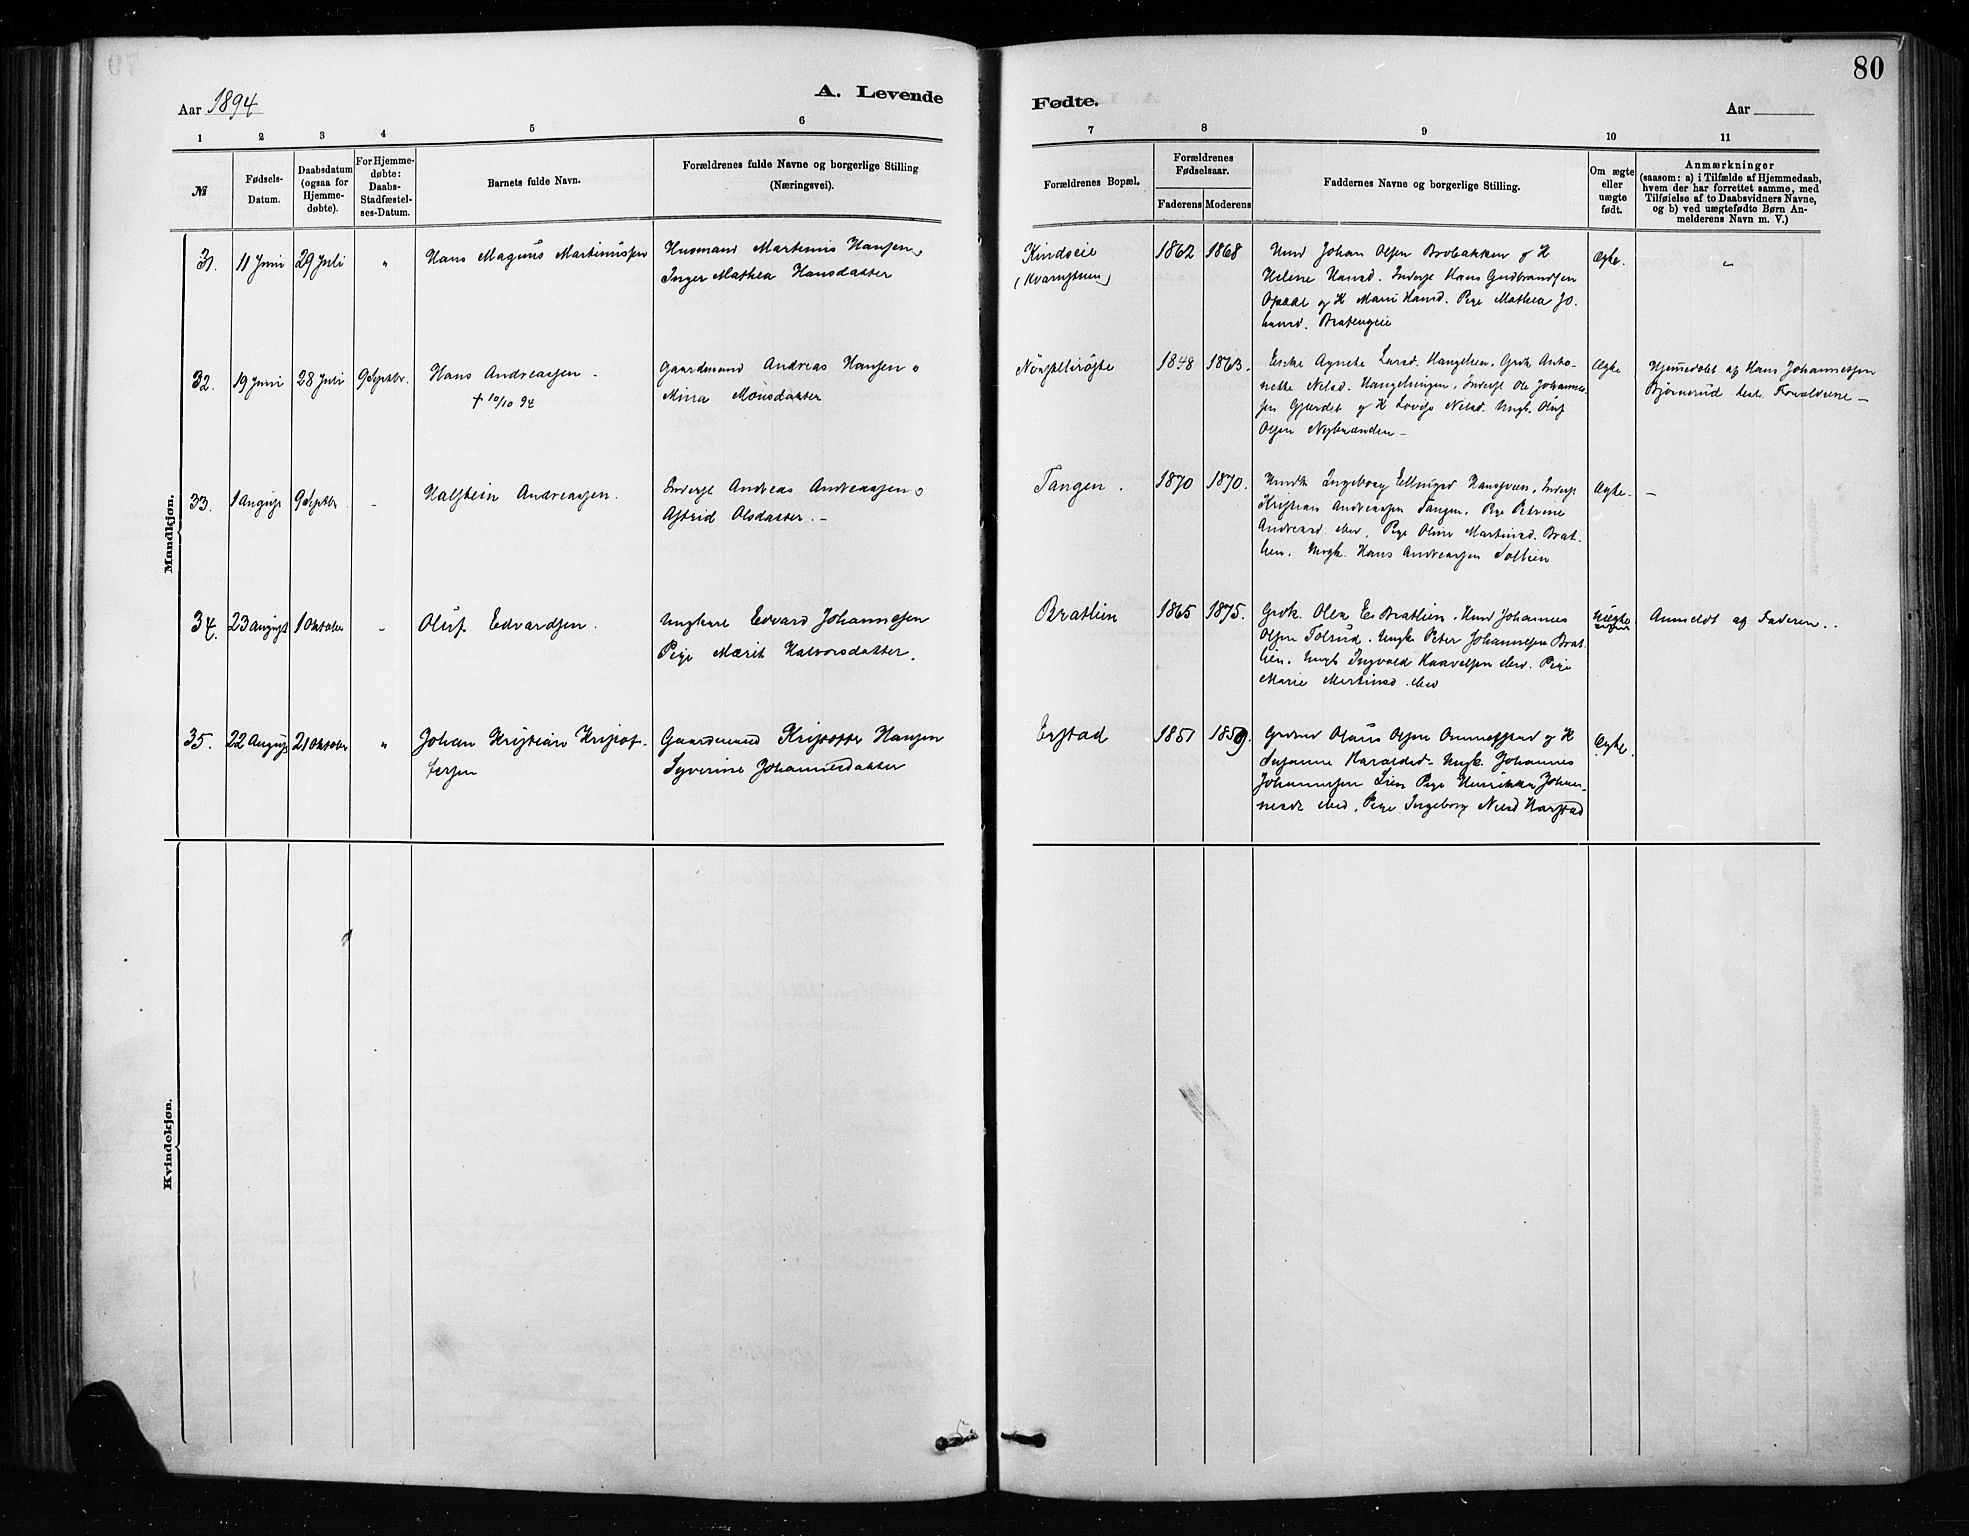 80
Aar 1894
A. Levende
Fødte.
Aar
1 2 3 4 5 6 7 8 9 10 11
№
Fødsels-
Datum.
Daabsdatum
(ogsaa for
Hjemme-
døbte).
For Hjemme-
døbte:
Daabs-
Stadfæstel-
ses-Datum.
Barnets fulde Navn.
Forældrenes fulde Navne og borgerlige Stilling
(Næringsvei).
Forældrenes Bopæl.
Forældrenes
Fødselsaar.
Faderens Moderens
Faddernes Navne og borgerlige Stilling.
Om ægte
eller
uægte
født.
Anmærkninger
(saasom: a) i Tilfælde af Hjemmedaab,
hvem der har forrettet samme, med
Tilføielse af to Daabsvidners Navne,
og b) ved uægtefødte Børn An-
melderens Navn m. V.)
Mandkjøn.
31. 11 Juni 29 Juli " Hans Magnus Martinussen
Husmand Martinus Hansen
Inger Mathea Hansdatter
Kindseie
1862 1868
Husm Johan Olsen Brobakken og K
Helene Hansd. Inderst Hans Gudbrandsen
Opaae og K Mari Hansd. Pige Mathea Jo.
hansd. Bratengeie
Ægte.
"
32. 19 Juni 28 Juli 9 Septbr. Hans Andreassen.
† 10/10 94
Gaardmand Andreas Hansen
Mina Monsdatter
1848 1863.
Enke Agnethe Larsd. Grdk. Anto-
nette Nelsd. Inderst Ole Johannes-
sen Gjerdet og K Lovise Nelsd. Ungk. Oluf
Olsen Nybrænden –
Ægte
Hjemmedøbt af Hans Johannessen
Bjørnerud test. Forældrene –
33. 1 August 9 Septbr - Halstein Andreassen.
Inderst Andreas Andreassen
Astrid Olsdatter. –
Tangen.
1870 1870.
Husmk Ingeborg Ellingsd Hansveen, Inderst
Kristian Andreassen Tangen, Pige Petrine
Andreasd ibid, Pige Oline Martinsd. Brat-
lien. Ungk. Hans Andreassen Sollien
Ægte.
–
34. 23 August 1 Oktober - Oluf Edvardsen.
Ungkarl Edvard Johannesen
Pige Marit Halvorsdatter.
Bratlien
1865 1875.
Grdk. Olea E. Bratlien. Husm Johannes
Olsen Tolsrud, Ungk. Peter Johannessen Brat
lien. Ungk Ingvald Haavelsen ibid. Pige
Marie Martinsd. ibid
Uægte
Anmeldt af Faderen.
35. 22 August 21 Oktober " Johan Kristian Kristof-
fersen
Gaardmand Kristoffer Hansen
Syverine Johannesdatter
Erstad
1851 1859.
Grdmd Olaus Olsen Ommestad og K
Susanne Haraldsd. Ungk. Johannes
Johannessen Lien Pige Henrikka Johan-
nesdr ibid. Pige Ingeborg Nelsd Harstad
Ægte.
Kvindekjøn.